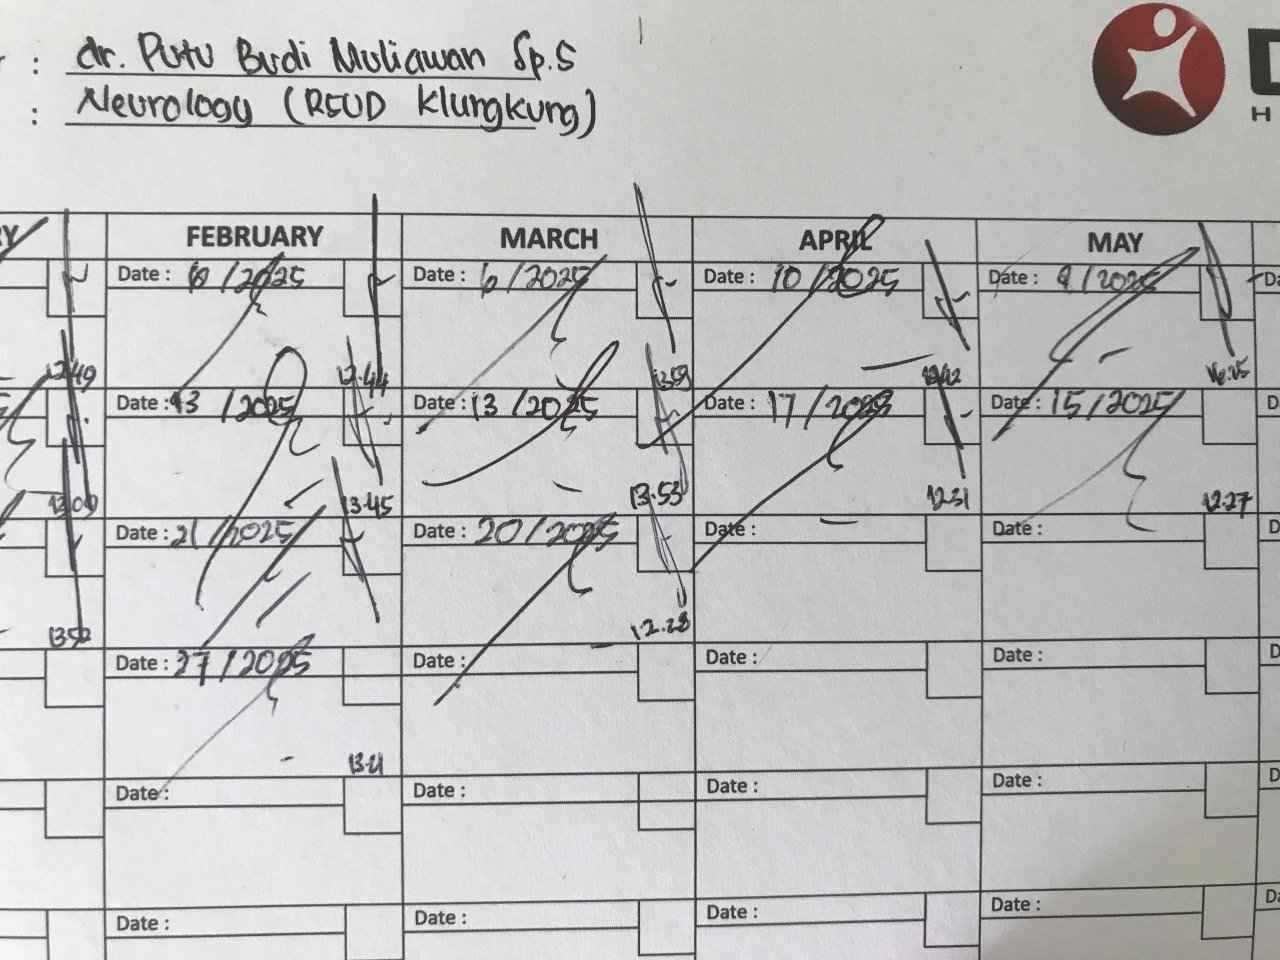 : dr. Putu Budi Muliawan Sp.S
: Neurology (RSUD Klungkung)
D
H
RY FEBRUARY MARCH APRIL MAY
Date : 6/2025 Date : 6/2025 Date : 10/2025 Date : 9/2025 Da
12.49 12.44 13.59 16.25
Date : 13/2025 Date : 13/2025 Date : 17/2025 Date : 15/2025 D
13.09 13.45 13.53 12.31 12.27
Date : 21/2025 Date : 20/2025 Date : Date : D
13.52 12.28
Date : 27/2025 Date : Date : Date : D
13.21
Date : Date : Date : Date : D
Date : Date : Date : Date : Da